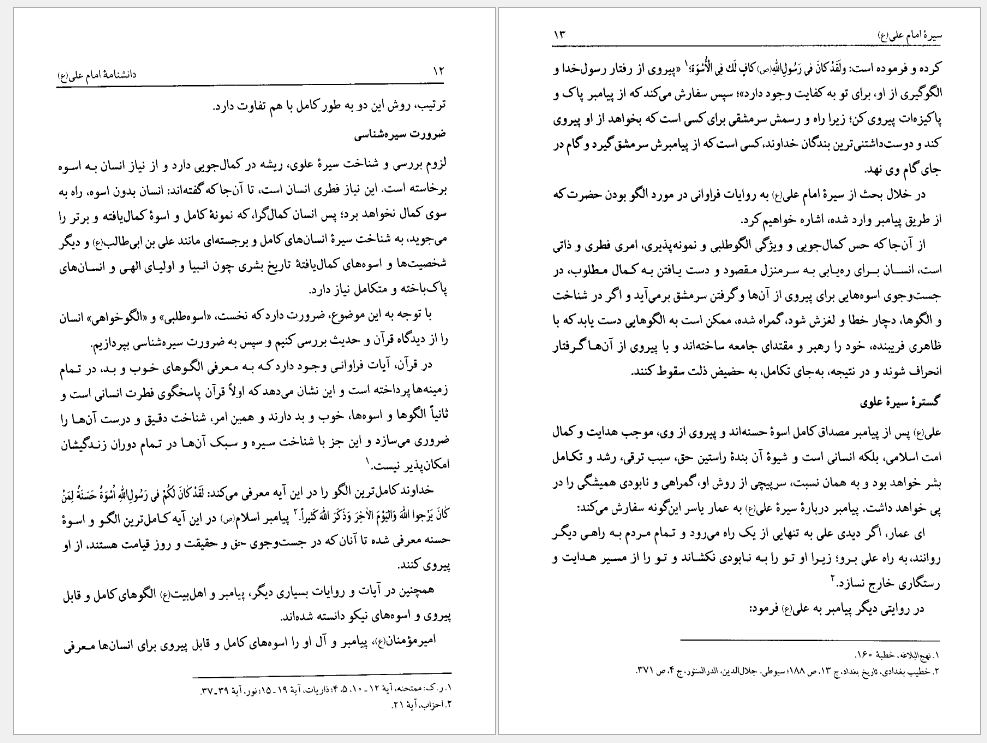 ۱۲ دانشنامهٔ امام علی(ع)
ترتیب، روش این دو به طور کامل با هم تفاوت دارد.
ضرورت سیره‌شناسی
لزوم بررسی و شناخت سیرهٔ علوی، ریشه در کمال‌جویی دارد و از نیاز انسان به اسوه
برخاسته است. این نیاز فطری انسان است، تا آن‌جا که گفته‌اند: انسان بدون اسوه، راه به
سوی کمال نخواهد برد؛ پس انسان کمال‌گرا، که نمونهٔ کامل و اسوهٔ کمال‌یافته و برتر را
می‌جوید، به شناخت سیرهٔ انسان‌های کامل و برجسته‌ای مانند علی بن ابی‌طالب(ع) و دیگر
شخصیت‌ها و اسوه‌های کمال‌یافتهٔ تاریخ بشری چون انبیا و اولیای الهی و انسان‌های
پاک‌باخته و متکامل نیاز دارد.
با توجه به این موضوع، ضرورت دارد که نخست، «اسوه‌طلبی» و «الگوخواهی» انسان
را از دیدگاه قرآن و حدیث بررسی کنیم و سپس به ضرورت سیره‌شناسی بپردازیم.
در قرآن، آیات فراوانی وجود دارد که به معرفی الگوهای خوب و بد، در تمام
زمینه‌ها پرداخته است و این نشان می‌دهد که اولاً قرآن پاسخگوی فطرت انسانی است و
ثانیاً الگوها و اسوه‌ها، خوب و بد دارند و همین امر، شناخت دقیق و درست آن‌ها را
ضروری می‌سازد و این جز با شناخت سیره و سبک آن‌ها در تمام دوران زندگیشان
امکان‌پذیر نیست.۱
خداوند کامل‌ترین الگو را در این آیه معرفی می‌کند: لَقَدْ كَانَ لَكُمْ فِي رَسُولِ اللهِ أُسْوَةٌ حَسَنَةٌ لِمَنْ
كَانَ يَرْجُوا اللهَ وَالْيَوْمَ الآخِرَ وَذَكَرَ اللهَ كَثِيراً.۲ پیامبر اسلام(ص) در این آیه کامل‌ترین الگو و اسوهٔ
حسنه معرفی شده تا آنان که در جست‌وجوی حق و حقیقت و روز قیامت هستند، از او
پیروی کنند.
همچنین در آیات و روایات بسیاری دیگر، پیامبر و اهل‌بیت(ع) الگوهای کامل و قابل
پیروی و اسوه‌های نیکو دانسته شده‌اند.
امیرمؤمنان(ع)، پیامبر و آل او را اسوه‌های کامل و قابل پیروی برای انسان‌ها معرفی
۱. ر.ک: ممتحنه، آیهٔ ۱۲ ـ ۱۰، ۵، ۴؛ ذاریات، آیهٔ ۱۹ ـ ۱۵؛ نور، آیهٔ ۳۹ ـ ۳۷.
۲. احزاب، آیهٔ ۲۱.
سیرهٔ امام علی(ع) ۱۳
کرده و فرموده است: ولَقَدْ كانَ في رَسُولِ اللهِ(ص) كافٍ لَكَ فِي الأُسْوَةِ؛۱ «پیروی از رفتار رسول‌خدا و
الگوگیری از او، برای تو به کفایت وجود دارد»؛ سپس سفارش می‌کند که از پیامبر پاک و
پاکیزه‌ات پیروی کن؛ زیرا راه و رسمش سرمشقی برای کسی است که بخواهد از او پیروی
کند و دوست‌داشتنی‌ترین بندگان خداوند، کسی است که از پیامبرش سرمشق گیرد و گام در
جای گام وی نهد.
در خلال بحث از سیرهٔ امام علی(ع) به روایات فراوانی در مورد الگو بودن حضرت که
از طریق پیامبر وارد شده، اشاره خواهیم کرد.
از آن‌جا که حس کمال‌جویی و ویژگی الگوطلبی و نمونه‌پذیری، امری فطری و ذاتی
است، انسان برای ره‌یابی به سرمنزل مقصود و دست یافتن به کمال مطلوب، در
جست‌وجوی اسوه‌هایی برای پیروی از آن‌ها و گرفتن سرمشق برمی‌آید و اگر در شناخت
و الگوها، دچار خطا و لغزش شود، گمراه شده، ممکن است به الگوهایی دست یابد که با
ظاهری فریبنده، خود را رهبر و مقتدای جامعه ساخته‌اند و با پیروی از آن‌ها گرفتار
انحراف شوند و در نتیجه، به‌جای تکامل، به حضیض ذلت سقوط کنند.
گسترهٔ سیرهٔ علوی
علی(ع) پس از پیامبر مصداق کامل اسوهٔ حسنه‌اند و پیروی از وی، موجب هدایت و کمال
امت اسلامی، بلکه انسانی است و شیوهٔ آن بندهٔ راستین حق، سبب ترقی، رشد و تکامل
بشر خواهد بود و به همان نسبت، سرپیچی از روش او، گمراهی و نابودی همیشگی را در
پی خواهد داشت. پیامبر دربارهٔ سیرهٔ علی(ع) به عمار یاسر این‌گونه سفارش می‌کند:
ای عمار، اگر دیدی علی به تنهایی از یک راه می‌رود و تمام مردم به راهی دیگر
روانند، به راه علی برو؛ زیرا او تو را به نابودی نکشاند و تو را از مسیر هدایت و
رستگاری خارج نسازد.۲
در روایتی دیگر پیامبر به علی(ع) فرمود:
۱. نهج‌البلاغه، خطبهٔ ۱۶۰.
۲. خطیب بغدادی، تاریخ بغداد، ج ۱۳، ص ۱۸۸؛ سیوطی، جلال‌الدین، الدرالمنثور، ج ۴، ص ۳۷۱.